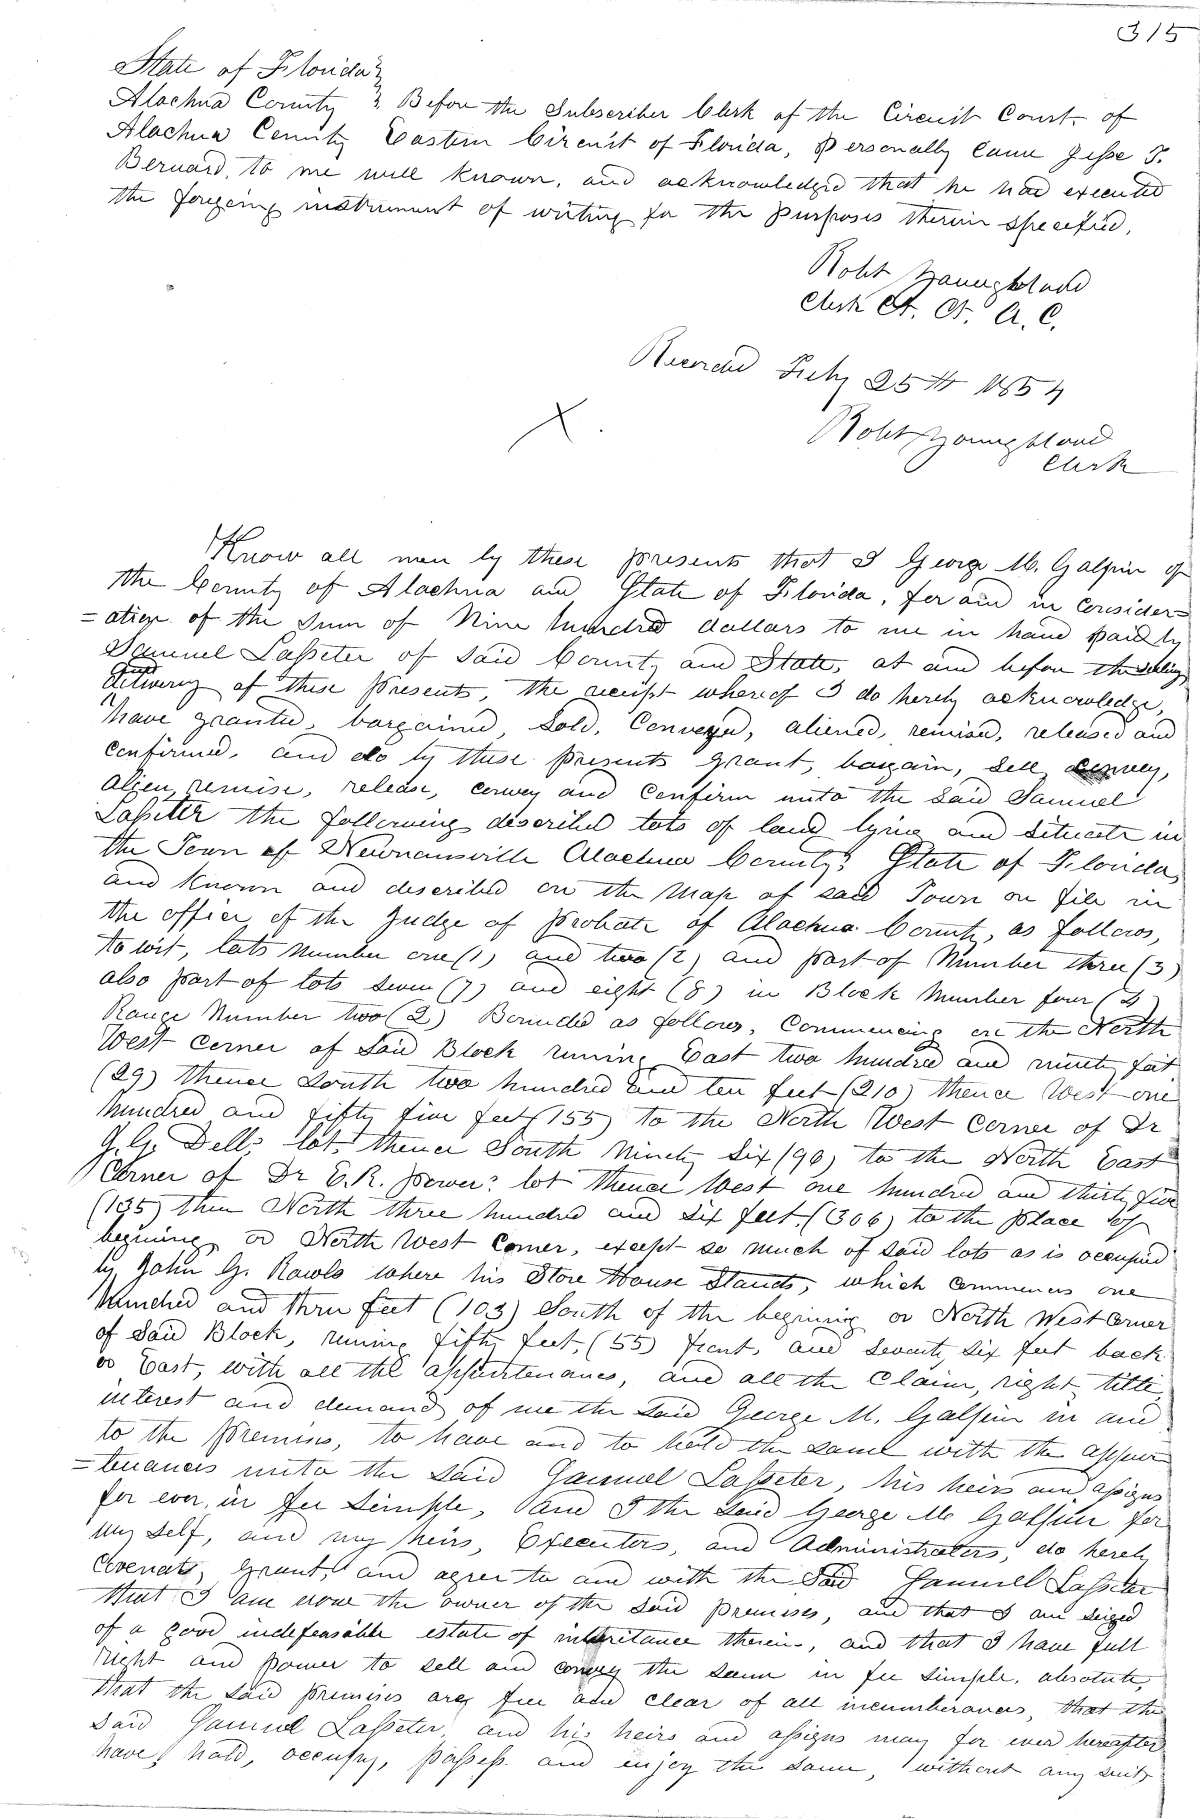 315
State of Florida }
Alachua County } Before the Subscriber Clerk of the Circuit Court, of
Alachua County Eastern Circuit of Florida, Personally came Jesse T.
Bernard, to me well known, and acknowledged that he had executed
the forgoing instrument of writing for the purposes therein specified,
Robt Youngblood
Clerk Ct. Ct. A. C.
Recorded July 25th 1854
Robt Youngblood
Clerk
Know all men by these presents that I George M. Galphin of
the County of Alachua and State of Florida, for and in consider=
=ation of the sum of Nine hundred dollars to me in hand paid by
Samuel Lasseter of said County and State, at and before the sealing
delivery of these presents, the receipt whereof I do herely acknowledge,
have granted, bargained, sold, conveyed, aliened, remised, released and
confirmed, and do by these presents grant, bargain, sell, convey,
alien, remise, release, convey and confirm unto the said Samuel
Lasseter the following described lots of land lying and situate in
the Town of Newnansville Alachua County, State of Florida,
and known and described on the map of said Town on file in
the office of the Judge of Probate of Alachua County, as follows,
to wit, lots number one (1) and two (2) and part of Number three (3)
also part of lots seven (7) and eight (8) in Block Number four (4)
Range Number two (2) Bounded as follows, Commencing on the North
West corner of said Block runing East two hundred and ninety feet
(29) thence South two hundred and ten feet (210) thence West one
hundred and fifty five feet (155) to the North West Corner of Dr
Dells lot, thence South Ninety Six (96) to the North East
Corner of Dr E. R. Powers lot thence West one hundred and thirty five
(135) then North three hundred and six feet, (306) to the place of
begining or North West Corner, except so much of said lots as is occupied
by John G. Rawls where his Store House Stands, which commences one
hundred and three feet (103) South of the begining or North West Corner
of said Block, runing fifty feet, (55) front, and seventy six feet back
or East, with all the appurtenances, and all the claim, right, title,
interest and demand of me the said George M. Galphin in and
to the premises, to have and to hold the same with the appur
=tenances unto the said Samuel Lasseter, his heirs and assigns
for ever, in fee simple, and I the said George M. Galphin for
my self, and my heirs, Executors, and Administrators, do herely
Covenats, grant, and agree to and with the said Samuel Lasseter
that I am now the owner of the said premises, and that I am seized
of a good indefeasible estate of inheritance therein, and that I have full
right and power to sell and convey the same in fee simple, absolute,
that the said premises are free and clear of all incumberances, that the
said Samuel Lasseter, and his heirs and assigns may for ever hereafter
have, hold, occupy, possess and enjoy the same, without any suit,